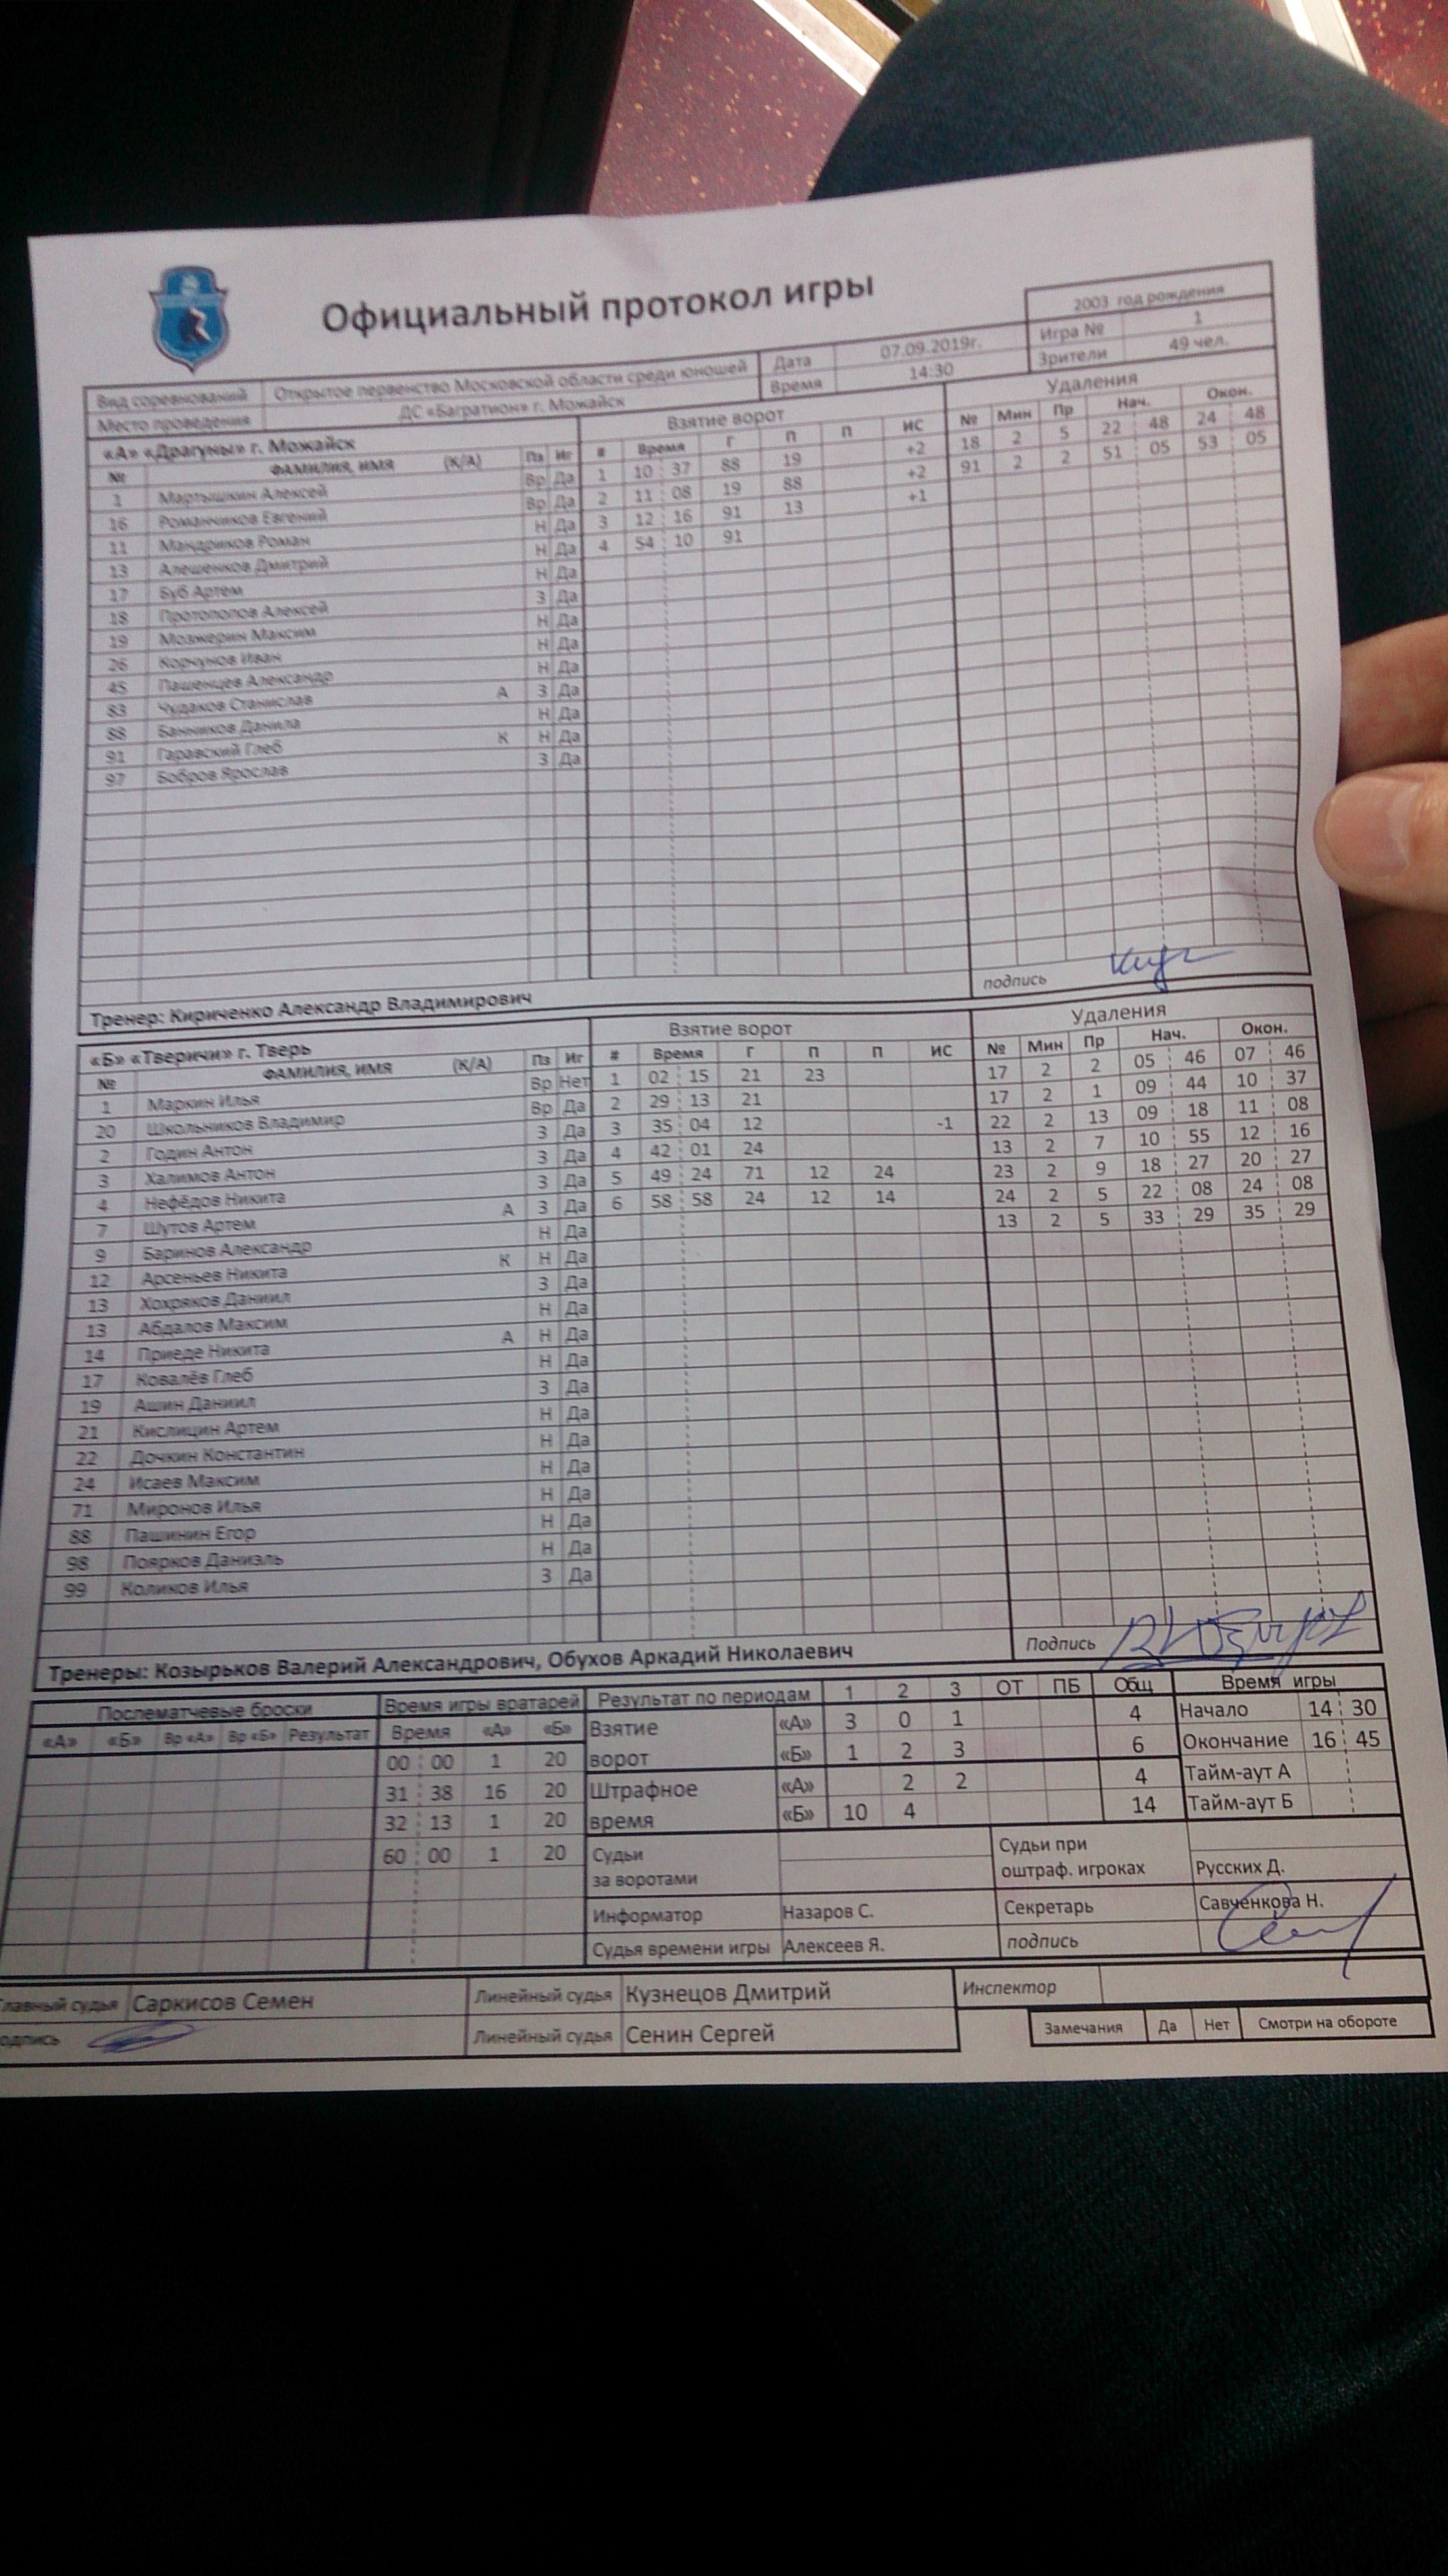 Официальный протокол игры
2003 год рождения
Вид соревнований Открытое первенство Московской области среди юношей Дата 07.09.2019г. Игра № 1
Место проведения ДС «Багратион» г. Можайск Время 14:30 Зрители 49 чел.
«А» «Драгуны» г. Можайск Взятие ворот Удаления
№ ФАМИЛИЯ, ИМЯ (К/А) Пз Иг # Время Г П П ИС № Мин Пр Нач. Окон.
1 Мартышкин Алексей Вр Да 1 10 37 88 19 +2 18 2 5 22 48 24 48
16 Романчиков Евгений Вр Да 2 11 08 19 88 +2 91 2 2 51 05 53 05
11 Мандриков Роман Н Да 3 12 16 91 13 +1
13 Алешенков Дмитрий Н Да 4 54 10 91
17 Буб Артем Н Да
18 Протопопов Алексей З Да
19 Мозжерин Максим Н Да
26 Корчунов Иван Н Да
45 Пашенцев Александр Н Да
83 Чудаков Станислав А З Да
88 Банников Данила Н Да
91 Гаравский Глеб К Н Да
97 Бобров Ярослав З Да
Тренер: Кириченко Александр Владимирович подпись
«Б» «Тверичи» г. Тверь Взятие ворот Удаления
№ ФАМИЛИЯ, ИМЯ (К/А) Пз Иг # Время Г П П ИС № Мин Пр Нач. Окон.
1 Маркин Илья Вр Нет 1 02 15 21 23 17 2 2 05 46 07 46
20 Школьников Владимир Вр Да 2 29 13 21 17 2 1 09 44 10 37
2 Годин Антон З Да 3 35 04 12 -1 22 2 13 09 18 11 08
3 Халимов Антон З Да 4 42 01 24 13 2 7 10 55 12 16
4 Нефёдов Никита З Да 5 49 24 71 12 24 23 2 9 18 27 20 27
7 Шутов Артем А З Да 6 58 58 24 12 14 24 2 5 22 08 24 08
9 Баринов Александр Н Да 13 2 5 33 29 35 29
12 Арсеньев Никита К Н Да
13 Хохряков Даниил З Да
13 Абдалов Максим Н Да
14 Приеде Никита А Н Да
17 Ковалёв Глеб Н Да
19 Ашин Даниил З Да
21 Кислицин Артем Н Да
22 Дочкин Константин Н Да
24 Исаев Максим Н Да
71 Миронов Илья Н Да
88 Пашинин Егор Н Да
98 Поярков Даниэль Н Да
99 Коликов Илья З Да
Тренеры: Козырьков Валерий Александрович, Обухов Аркадий Николаевич Подпись
Послематчевые броски Время игры вратарей Результат по периодам 1 2 3 ОТ ПБ Общ Время игры
«А» «Б» Вр «А» Вр «Б» Результат Время «А» «Б» Взятие «А» 3 0 1 4 Начало 14 30
00 00 1 20 ворот «Б» 1 2 3 6 Окончание 16 45
31 38 16 20 Штрафное «А» 2 2 4 Тайм-аут А
32 13 1 20 время «Б» 10 4 14 Тайм-аут Б
60 00 1 20 Судьи за воротами Судьи при оштраф. игроках Русских Д.
Информатор Назаров С. Секретарь Савченкова Н.
Судья времени игры Алексеев Я. подпись
Главный судья Саркисов Семен Линейный судья Кузнецов Дмитрий Инспектор
подпись Линейный судья Сенин Сергей Замечания Да Нет Смотри на обороте